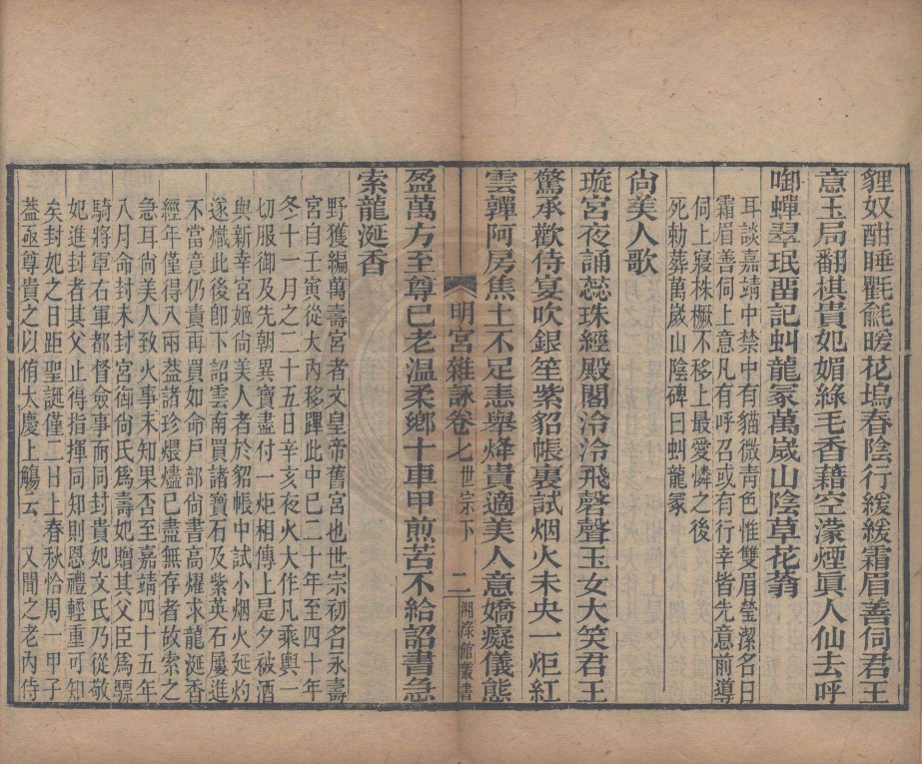 貍奴酣睡氍毹暖花塢春陰行緩緩霜眉善伺君王
意玉局翻棋貴妃媚綠毛香藉空濛煙眞人仙去呼
啣蟬翠珉畱記虯龍冢萬嵗山陰草花蓊
耳談嘉靖中禁中有貓微青色惟雙眉瑩潔名曰
霜眉善伺上意凡有呼召或有行幸皆先意前導
伺上寢株橛不移上最愛憐之後
死勅葬萬嵗山陰碑曰虯龍冢
尙美人歌
璇宮夜誦蕊珠經殿閣泠泠飛磬聲玉女大笑君王
驚承歡侍宴吹銀笙紫貂帳裏試烟火未央一炬紅
雲嚲阿房焦土不足恚舉烽貴適美人意嬌癡儀態
明宮雜詠卷七 世宗下 二 湘綠館叢書
盈萬方至尊已老溫柔鄉十車甲煎苦不給詔書急
索龍涎香
野獲編萬壽宮者文皇帝舊宮也世宗初名永壽
宮自壬寅從大內移蹕此中已二十年至四十年
冬十一月之二十五日辛亥夜火大作凡乘輿一
切服御及先朝異寶盡付一炬相傳上是夕被酒
與新幸宮姬尙美人者於貂帳中試小烟火延灼
遂熾此後卽下詔雲南買諸寶石及紫英石屢進
不當意仍責再買如命戶部尙書高燿求龍涎香
經年僅得八兩葢諸珍煨燼已盡無存者故索之
急耳尙美人致火事未知果否至嘉靖四十五年
八月命封未封宮御尙氏爲壽妃贈其父臣爲驃
騎將軍右軍都督僉事而同封貴妃文氏乃從敬
妃進封者其父止得指揮同知則恩禮輕重可知
矣封妃之日距聖誕僅二日上春秋恰周一甲子
葢亟尊貴之以侑大慶上觴云 又聞之老內侍